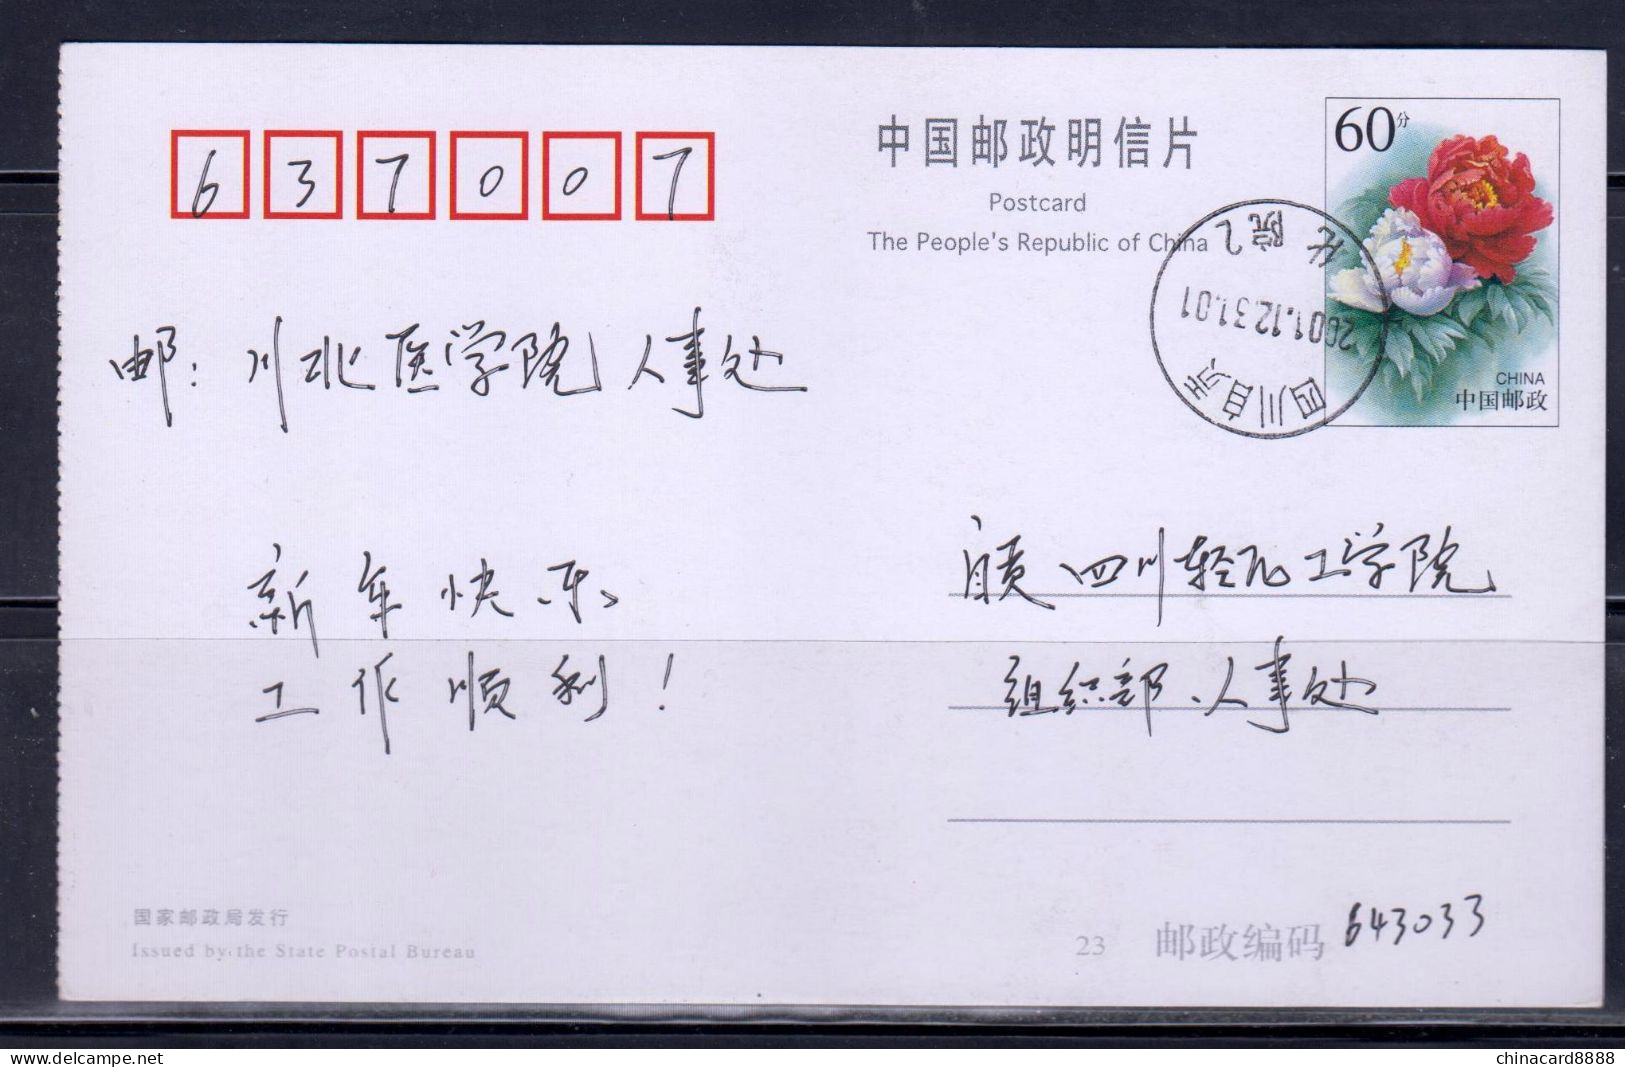 637007
中国邮政明信片
Postcard
The People's Republic of China
60分
CHINA
中国邮政
2001.12.31.01
四川自贡
化院2
邮：川北医学院人事处
新年快乐
工作顺利！
自贡四川轻化工学院
组织部、人事处
国家邮政局发行
Issued by the State Postal Bureau
23
邮政编码 643033
delcampe.net
chinacard8888